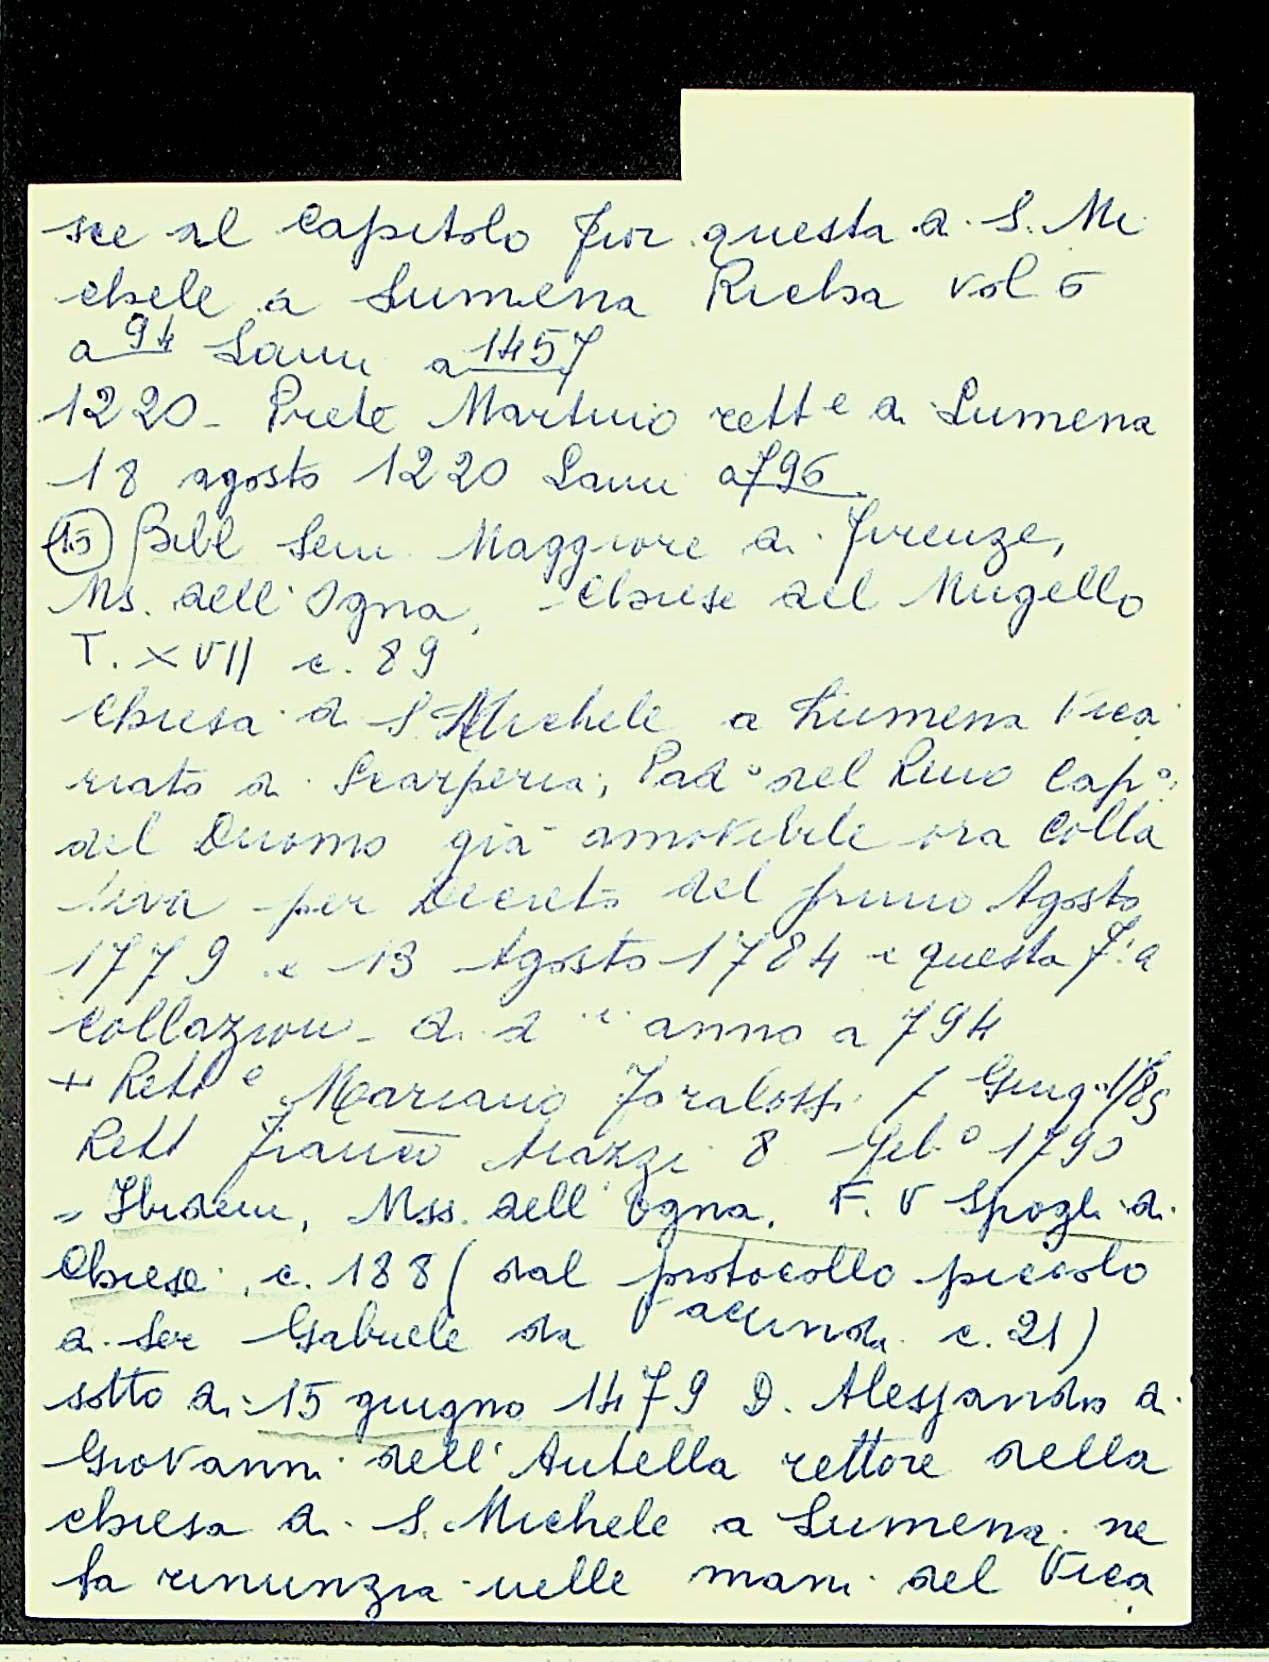 sce al Capitolo fior questa di S. Mi
chele a Lumena Richa vol 6
a 94 Lami a 1457
1220 - Prete Martino rett e di Lumena
18 agosto 1220 Lami a 796
(15) Bibl Sem Maggiore di Firenze,
Ms. dell'Ogna, Chiese del Mugello
T. XVII c. 89
Chiesa di S Michele a Lumena Vica
riato di Scarperia; Pad° del Rmo Cap°:
del Duomo già amovibile ora Colla
tiva per Decreto del primo Agosto
1779 e 13 Agosto 1784 e questa 7: a
Collazion - di d anno a 794
+ Rett e Mariano Giug° 1785
Rett Franco 8 Feb° 1790
= Ibidem, Mss. dell'Ogna, F. V Spogli di
Chiese, c. 188 (dal protocollo piccolo
di Ser Gabriele da c. 21)
sotto di: 15 giugno 1479 D. Alessandro di
Giovanni dell'Antella rettore della
chiesa di S. Michele a Lumena, ne
fa rinunzia nelle mani del Vica